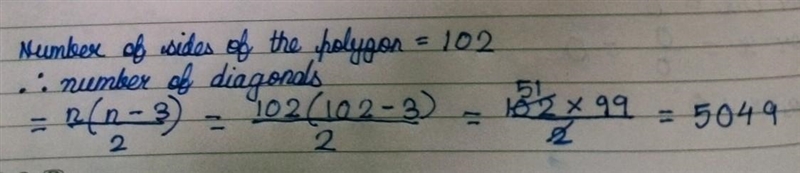 Number of sides of the polygon = 102
∴ number of diagonals
= n(n-3)/2 = 102(102-3)/2 = 51 102 × 99/2 = 5049